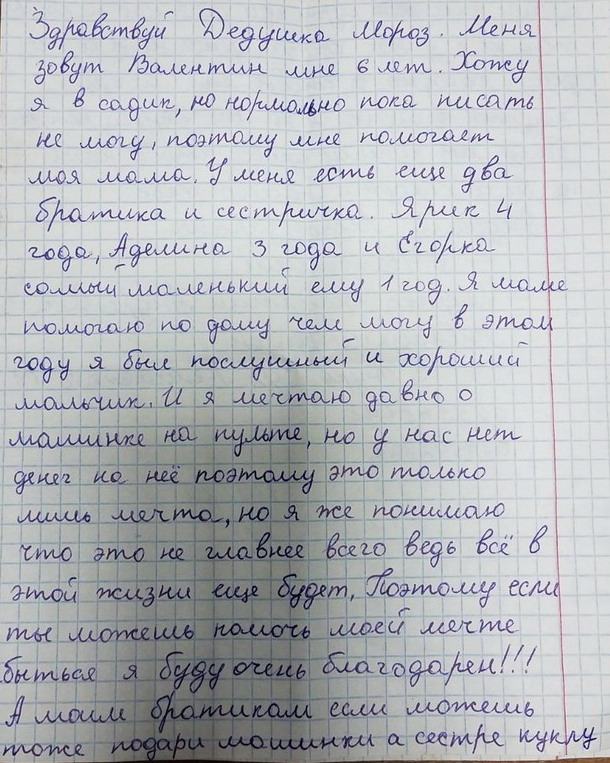 Здравствуй Дедушка Мороз. Меня
зовут Валентин мне 6 лет. Хожу
я в садик, но нормально пока писать
не могу, поэтому мне помогает
моя мама. У меня есть еще два
братика и сестричка. Ярик 4
года, Аделина 3 года и Егорка
самый маленький ему 1 год. Я маме
помогаю по дому чем могу в этом
году я был послушный и хороший
мальчик. И я мечтаю давно о
машинке на пульте, но у нас нет
денег на неё поэтому это только
лишь мечта, но я же понимаю
что это не главнее всего ведь всё в
этой жизни еще будет, Поэтому если
ты можешь помочь моей мечте
быться я буду очень благодарен!!!
А моим братикам если можешь
тоже подари машинки а сестре куклу